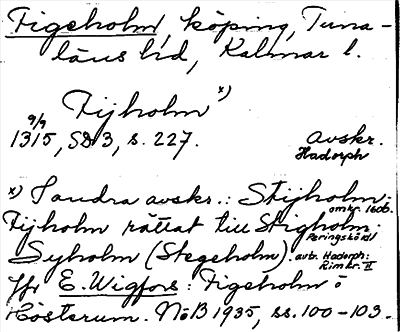 Figeholm, köping, Tuna-
läns hd, Kalmar l.
Fijholm x)
9/9
1315, SD 3, s. 227.
Avskr.
Hadorph
x) I andra avskr.: Stijholm;
omkr. 1600.
Fijholm rättat till Stigholm;
Peringsköld
Syholm (Stegeholm).
avb. Hadorph:
Rimkr. II
Jfr E. Wigfors: Figeholm o
Hösterum. NoB 1935, ss. 100-103.